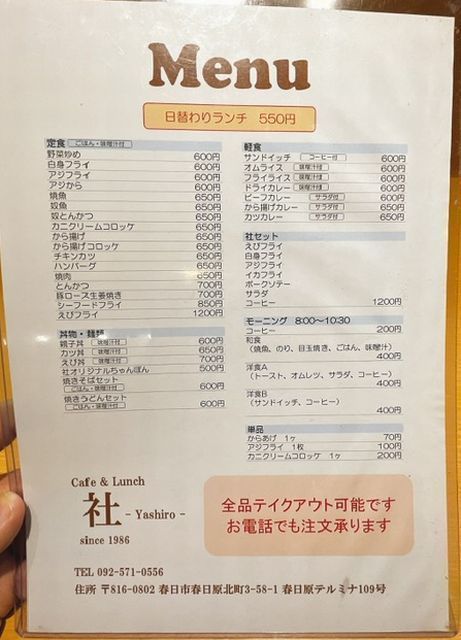 Menu
日替わりランチ 550円
定食 ごはん・味噌汁付
野菜炒め 600円
白身フライ 600円
アジフライ 600円
アジから 600円
焼魚 650円
奴魚 650円
奴とんかつ 650円
カニクリームコロッケ 650円
から揚げ 650円
から揚げコロッケ 650円
チキンカツ 650円
ハンバーグ 650円
焼肉 650円
とんかつ 700円
豚ロース生姜焼き 700円
シーフードフライ 850円
えびフライ 1200円
丼物・麺類
親子丼 味噌汁付 600円
カツ丼 味噌汁付 650円
えび丼 味噌汁付 700円
社オリジナルちゃんぽん 500円
焼きそばセット
ごはん・味噌汁付 600円
焼きうどんセット
ごはん・味噌汁付 600円
軽食
サンドイッチ コーヒー付 600円
オムライス 味噌汁付 600円
フライライス 味噌汁付 600円
ドライカレー 味噌汁付 600円
ビーフカレー サラダ付 600円
から揚げカレー サラダ付 650円
カツカレー サラダ付 650円
社セット
えびフライ
白身フライ
アジフライ
イカフライ
ポークソテー
サラダ
コーヒー 1200円
モーニング 8:00〜10:30
コーヒー 200円
和食
(焼魚、のり、目玉焼き、ごはん、味噌汁)
400円
洋食A
(トースト、オムレツ、サラダ、コーヒー)
400円
洋食B
(サンドイッチ、コーヒー)
400円
単品
からあげ 1ヶ 70円
アジフライ 1枚 100円
カニクリームコロッケ 1ヶ 200円
Cafe & Lunch
社 - Yashiro -
since 1986
全品テイクアウト可能です
お電話でも注文承ります
TEL 092-571-0556
住所 〒816-0802 春日市春日原北町3-58-1 春日原テルミナ109号